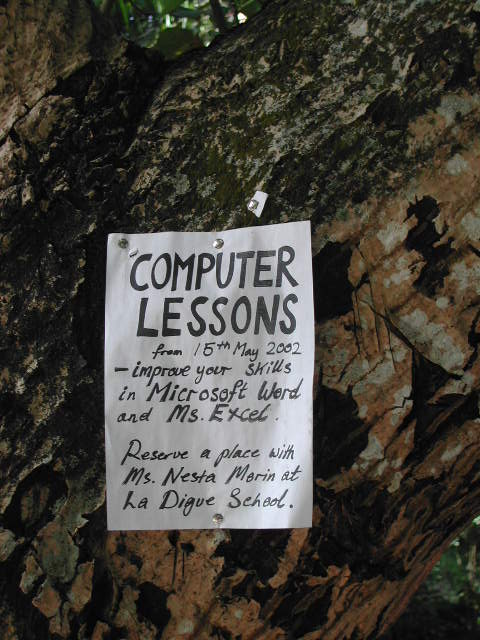 COMPUTER
LESSONS
from 15th May 2002
- improve your skills
in Microsoft Word
and Ms. Excel.
Reserve a place with
Ms. Nesta Morin at
La Digue School.